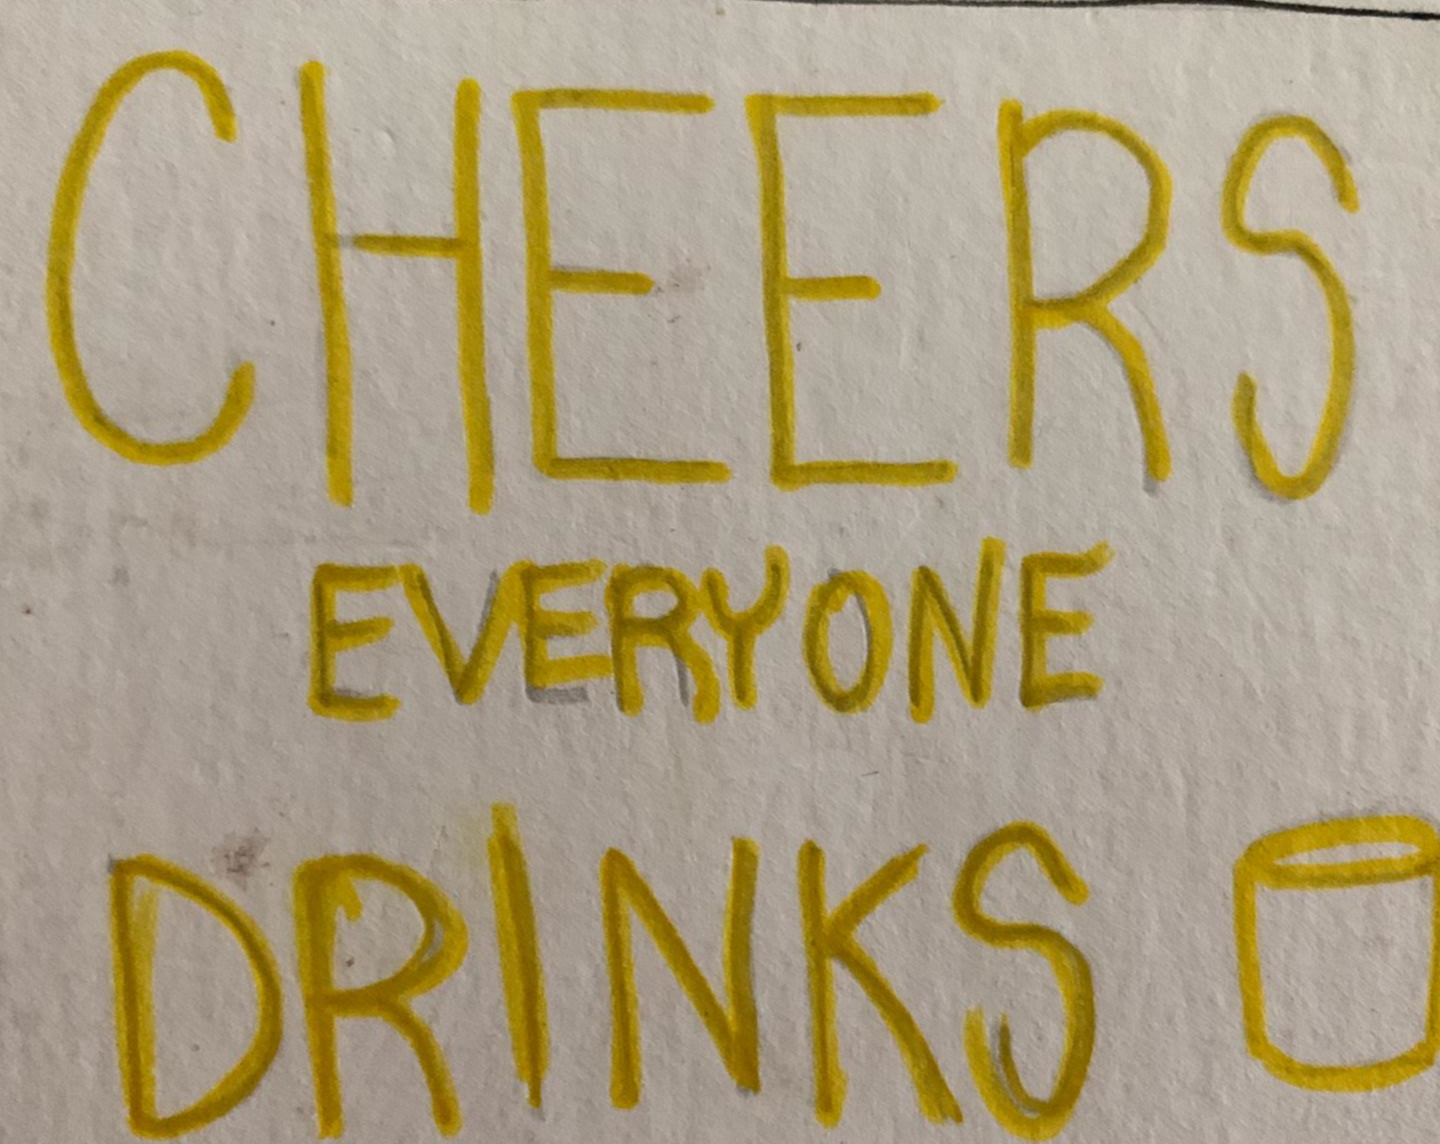 CHEERS
EVERYONE
DRINKS